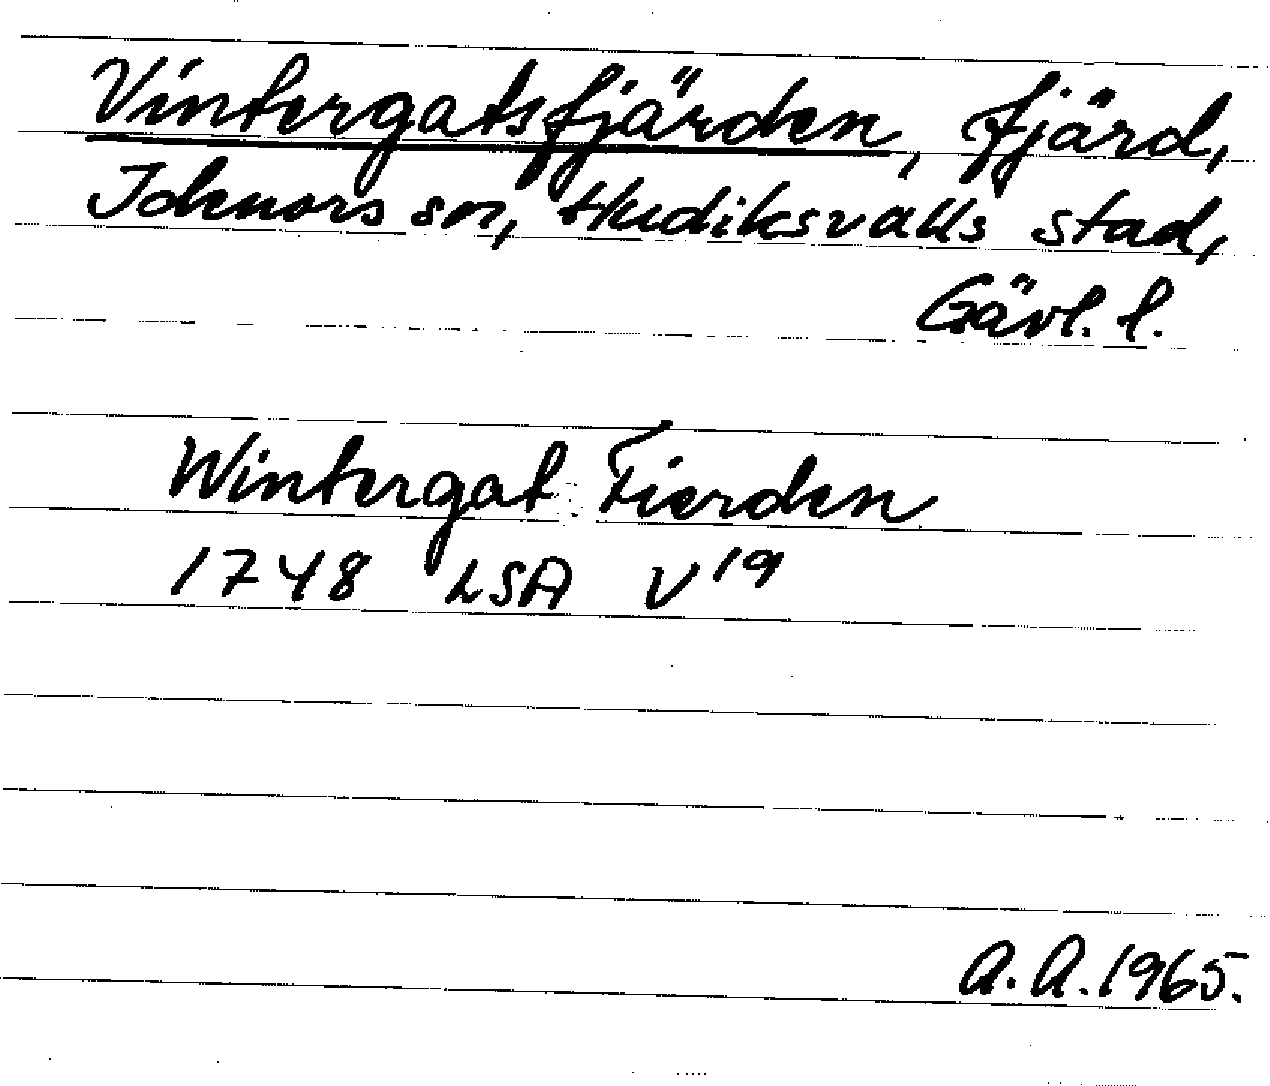 Vintergatsfjärden, fjärd,
Idenors sn, Hudiksvalls stad,
Gävl. l.
Wintergat Fierden
1748 LSA V19
A.A.1965.